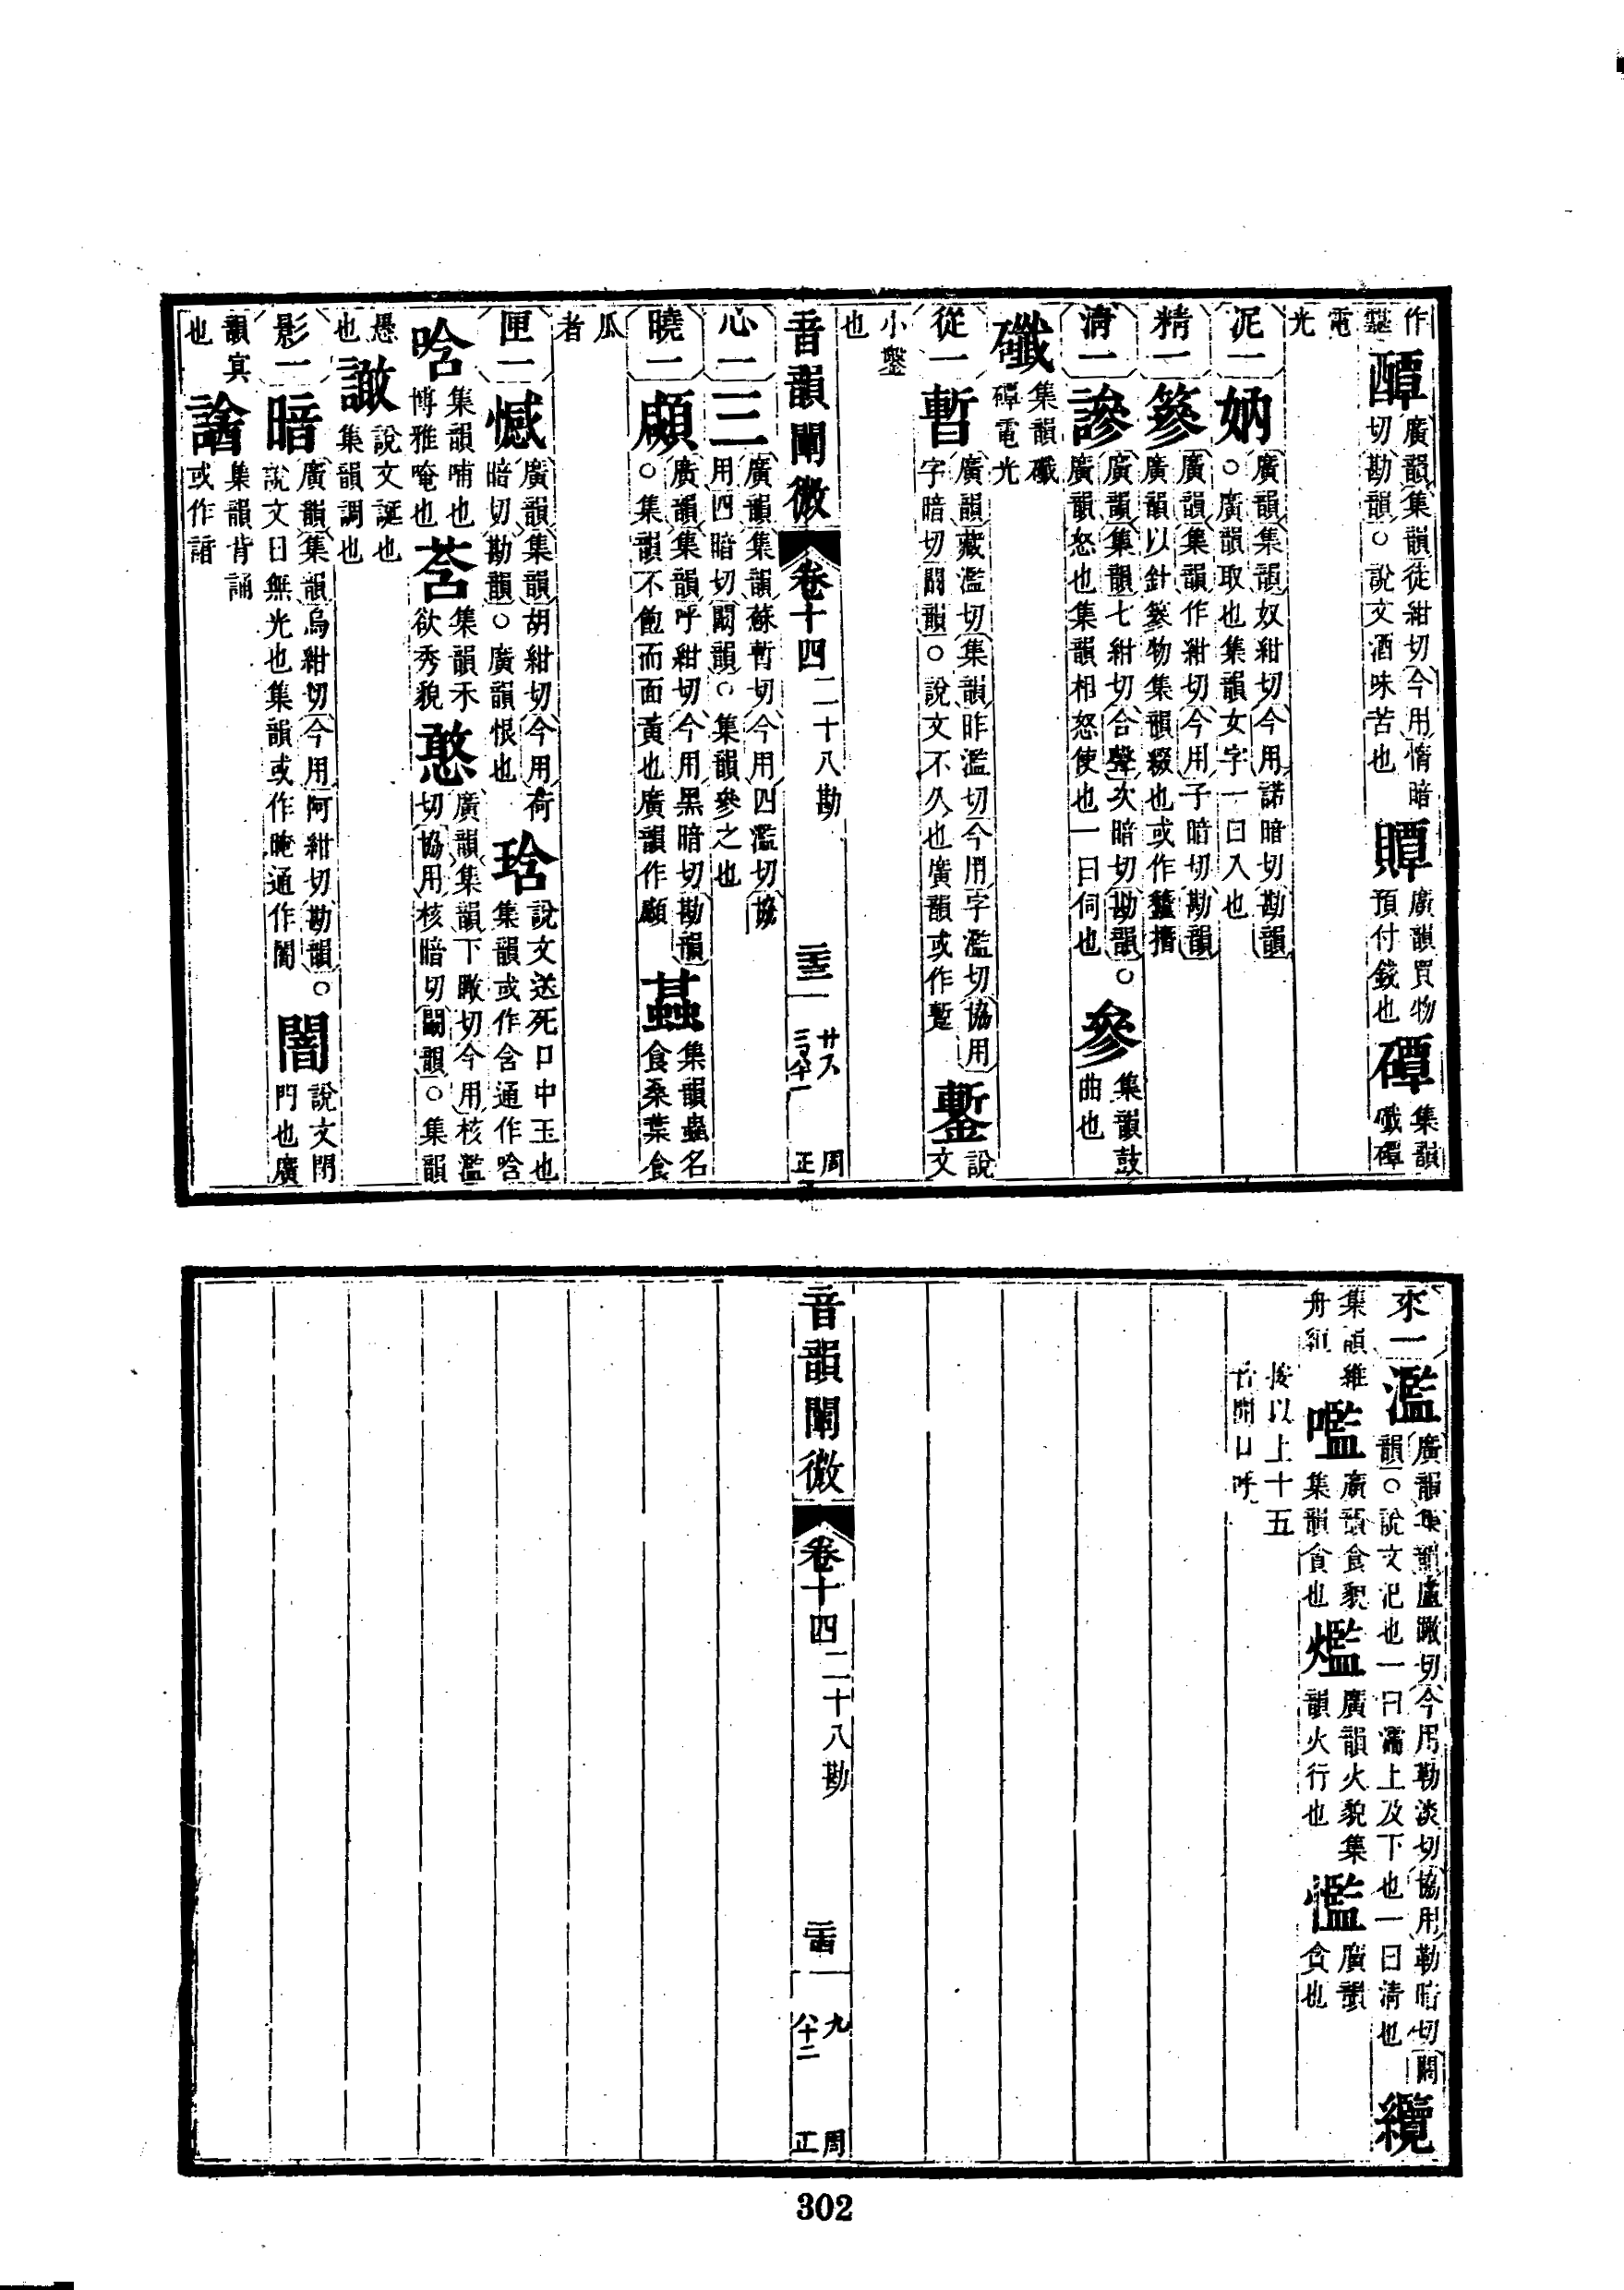 作
㽉
醰廣韻集韻徒紺切今用惰暗切勘韻○說文酒味苦也贉廣韻買物預付錢也磹集韻㸂磹
電
光
泥一妠廣韻集韻奴紺切今用諾暗切勘韻○廣韻取也集韻女字一曰入也
精一篸廣韻集韻作紺切今用子暗切勘韻廣韻以針篸物集韻綴也或作𥸤撍
清一謲廣韻集韻七紺切合聲次暗切勘韻○廣韻怒也集韻相怒使也一曰伺也參集韻鼓曲也
㸂集韻㸂磹電光
從一暫廣韻藏濫切集韻昨濫切今用字濫切協用字暗切闞韻○說文不久也廣韻或作蹔鏨說文
小鑿
也
音韻闡微 卷十四 二十八勘 三十三 周正
心一三廣韻集韻蘇暫切今用四濫切協用四暗切闞韻○集韻參之也
曉一顑廣韻集韻呼紺切今用黑暗切勘韻○集韻不飽而面黃也廣韻作顲䗣集韻蟲名食桑葉食
瓜
者
匣一憾廣韻集韻胡紺切今用荷暗切勘韻○廣韻恨也琀說文送死口中玉也集韻或作含通作唅
唅集韻哺也博雅唵也莟集韻禾欲秀貌憨廣韻集韻下瞰切今用核濫切協用核暗切闞韻○集韻
愚也譀說文誕也集韻調也
影一暗廣韻集韻烏紺切今用阿紺切勘韻○說文日無光也集韻或作晻通作闇闇說文閉門也廣
韻冥也諳集韻背誦或作䛳
來一濫廣韻集韻盧瞰切今用勒淡切協用勒暗切闞韻○說文氾也一曰濡上及下也一曰清也纜
集韻維舟絙嚂廣韻食貌集韻貪也爁廣韻火貌集韻火行也㜮廣韻貪也
按以上十五
音開口呼
音韻闡微 卷十四 二十八勘 三十四 九 六十二 周正
302